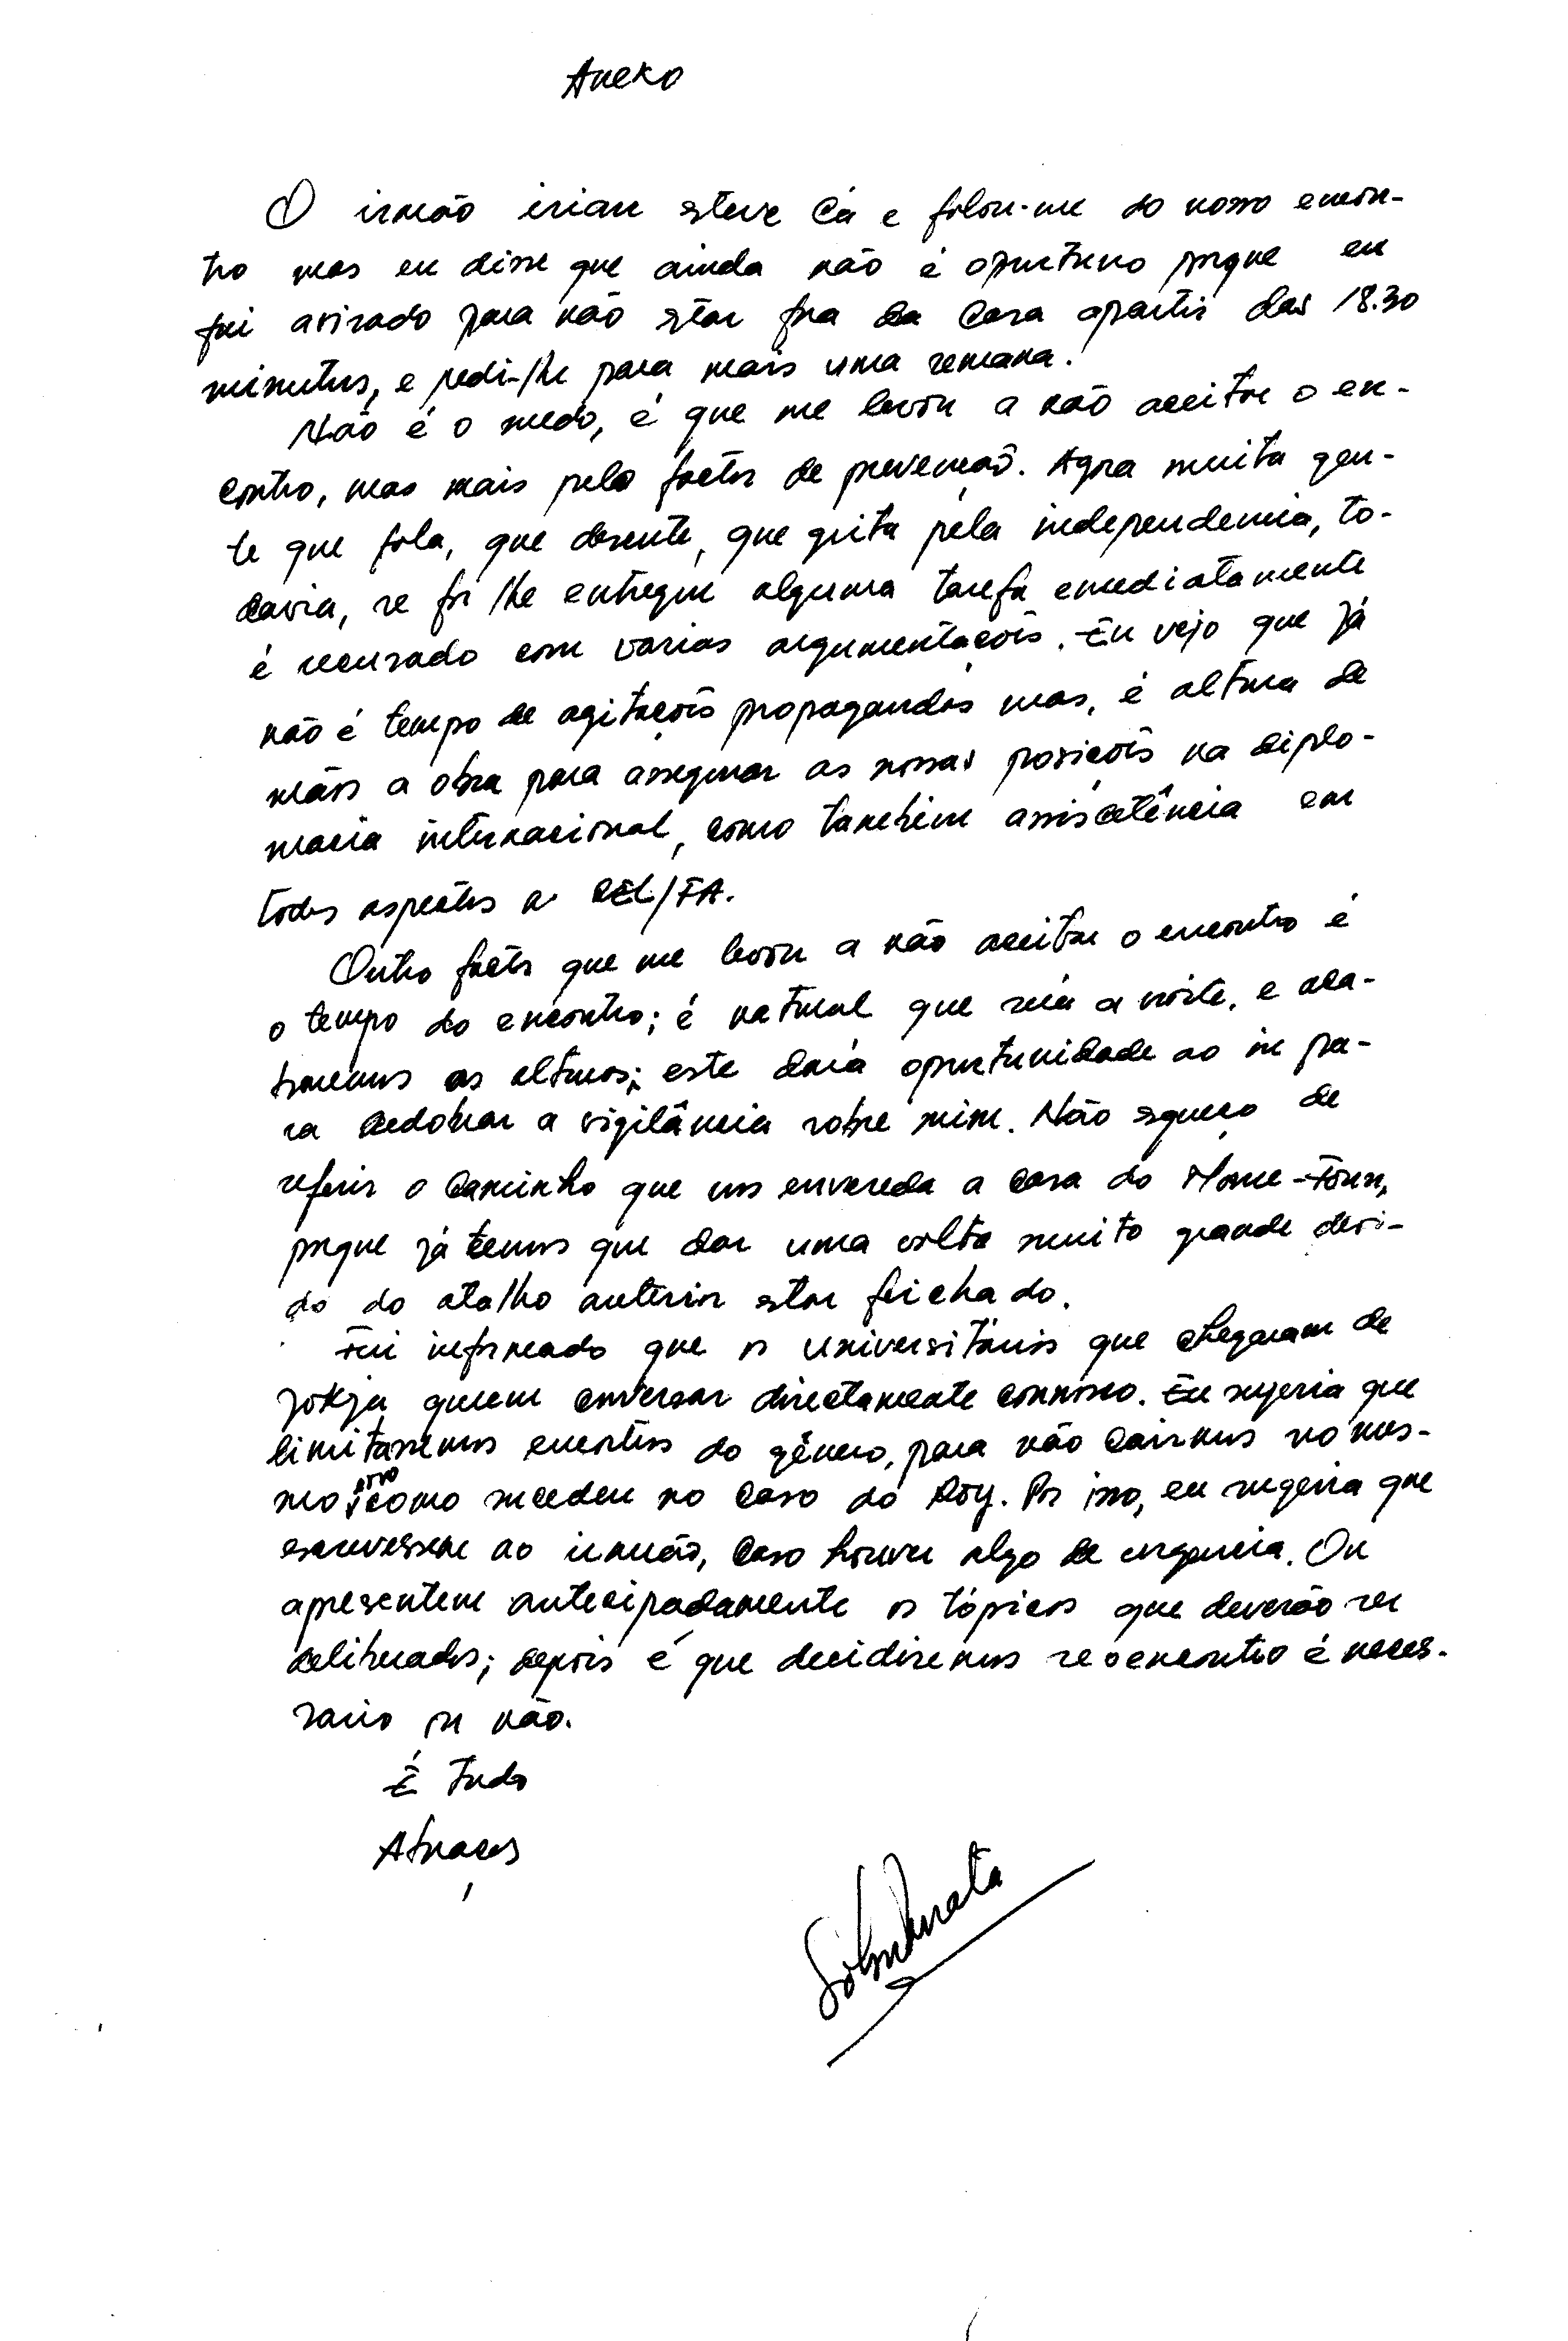 Anexo
O irmão irian steve cá e falou-me do nosso encon-
tro mas eu disse que ainda não é oportuno porque eu
fui avisado para não star fora da casa apartir das 18.30
minutos, e pedi-lhe para mais uma semana.
Não é o medo, é que me levou a não aceitar o en-
contro, mas mais pelo factor de prevenção. Agora muita gen-
te que fala, que desente, que grita pela independencia, to-
davia, se for lhe entregue alguma tarefa emediatamente
é recusado com varias argumentações. Eu vejo que já
não é tempo de agitações propagandas mas, é altura de
mãos a obra para assegurar as nossas posições na diplo-
macia internacional, como também assisctência em
todos aspectos a CEL/FA.
Outro factor que me levou a não aceitar o encontro é
o tempo do encontro; é natural que seia a noite, e
as altuos; este daria oportunidade ao in pa-
ra redobrar a vigilância sobre mim. Não squeço de
referir o caminho que nos envereda a casa do
porque já temos que dar uma volta muito grande devi-
do do atalho anterior star feichado.
Fui informado que os universitários que chegaram de
Jokja querem conversar directamente connosco. Eu sugeria que
limitassemos encontros do género, para não cairmos no mes-
mo erro como sucedeu no caso do Roy. Por isso, eu sugeria que
escrevessem ao irmão, caso houver algo de urgencia. Ou
apresentem antecipadamente os tópicos que deverão ser
deliberados; depois é que decidiremos se o encontro é neces-
sario ou não.
É tudo
Abraços